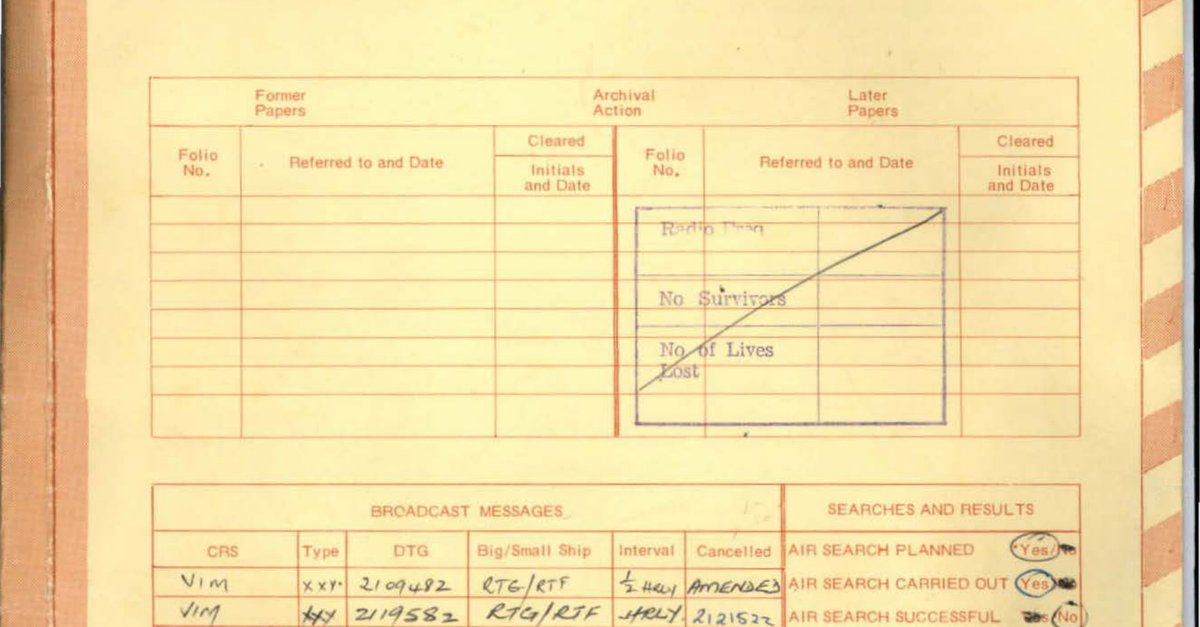 Former Papers Archival Action Later Papers
Folio No. Referred to and Date Cleared Folio No. Referred to and Date Cleared
Initials and Date Initials and Date
Radio Freq
No Survivors
No of Lives
Lost
BROADCAST MESSAGES SEARCHES AND RESULTS
CRS Type DTG Big/Small Ship Interval Cancelled AIR SEARCH PLANNED Yes/No
VIM XXX 210948Z RTG/RTF ½ HRLY AMENDED AIR SEARCH CARRIED OUT Yes
VIM XXX 211958Z RTG/RTF HRLY 212152Z AIR SEARCH SUCCESSFUL Yes No